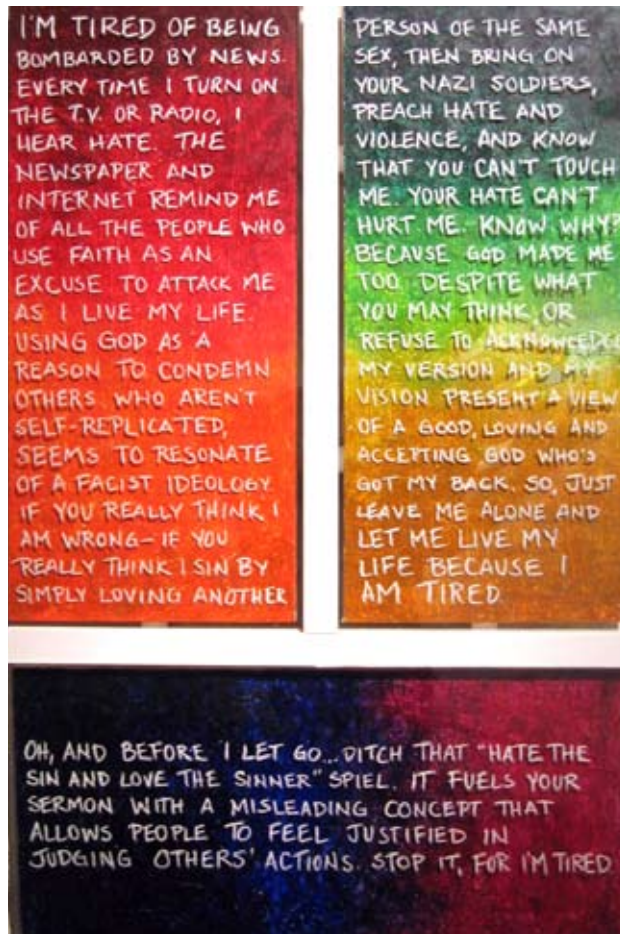 I'M TIRED OF BEING
BOMBARDED BY NEWS.
EVERY TIME I TURN ON
THE T.V. OR RADIO, I
HEAR HATE. THE
NEWSPAPER AND
INTERNET REMIND ME
OF ALL THE PEOPLE WHO
USE FAITH AS AN
EXCUSE TO ATTACK ME
AS I LIVE MY LIFE.
USING GOD AS A
REASON TO CONDEMN
OTHERS WHO AREN'T
SELF-REPLICATED,
SEEMS TO RESONATE
OF A FACIST IDEOLOGY.
IF YOU REALLY THINK I
AM WRONG-IF YOU
REALLY THINK I SIN BY
SIMPLY LOVING ANOTHER
PERSON OF THE SAME
SEX, THEN BRING ON
YOUR NAZI SOLDIERS,
PREACH HATE AND
VIOLENCE, AND KNOW
THAT YOU CAN'T TOUCH
ME. YOUR HATE CAN'T
HURT ME. KNOW WHY?
BECAUSE GOD MADE ME
TOO. DESPITE WHAT
YOU MAY THINK, OR
REFUSE TO ACKNOWLEDGE
MY VERSION AND MY
VISION PRESENT A VIEW
OF A GOOD, LOVING AND
ACCEPTING GOD WHO'S
GOT MY BACK. SO, JUST
LEAVE ME ALONE AND
LET ME LIVE MY
LIFE BECAUSE I
AM TIRED.
OH, AND BEFORE I LET GO...DITCH THAT "HATE THE
SIN AND LOVE THE SINNER" SPIEL. IT FUELS YOUR
SERMON WITH A MISLEADING CONCEPT THAT
ALLOWS PEOPLE TO FEEL JUSTIFIED IN
JUDGING OTHERS' ACTIONS. STOP IT, FOR I'M TIRED.